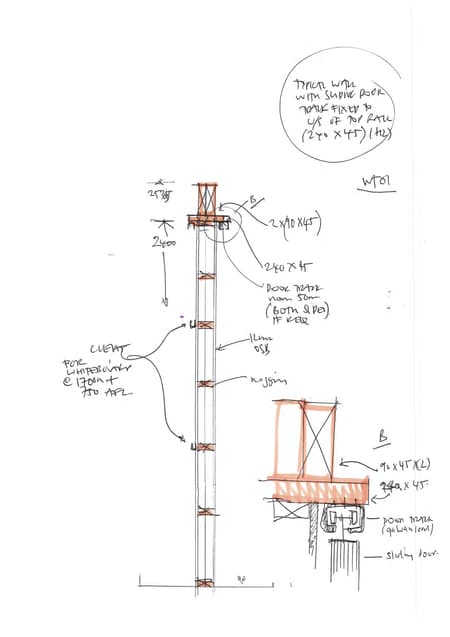 TYPICAL WALL
WITH SLIDING DOOR
TRACK FIXED TO
U/S OF TOP RAIL
(240 X 45) (H2)
WT01
B
2x(90x45)
2400
240 x 45
DOOR TRACK
50mm
(BOTH SIDES)
IF REQ
12mm
OSB
CLEAT
FOR
WHITEBOARD
@ 1700 +
750 AFL
nogging
B
90 x 45 (2)
x 45
DOOR TRACK
sliding door